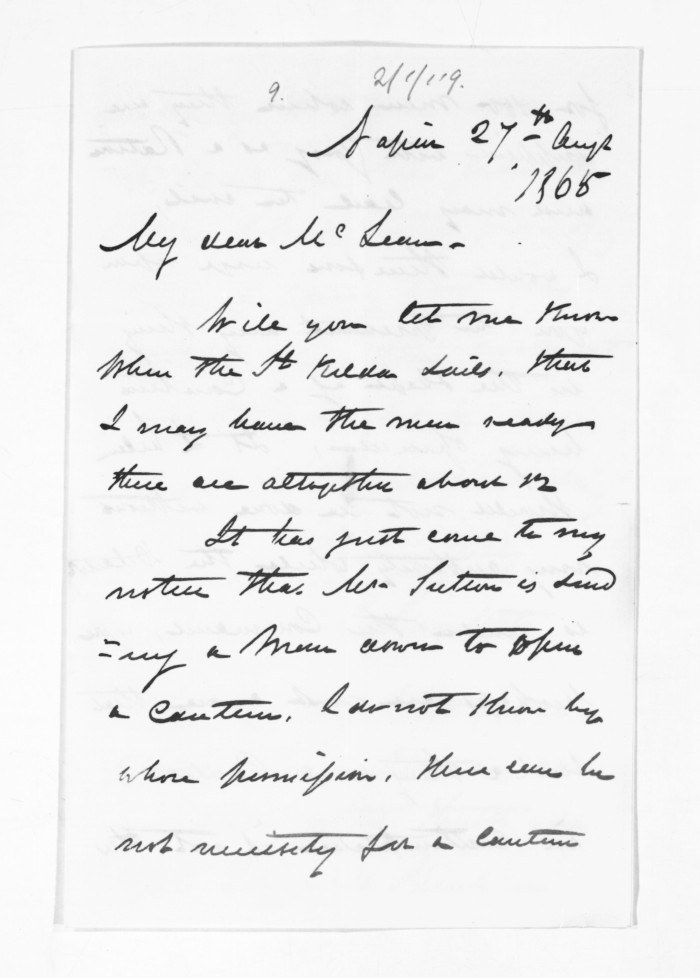 9.
2/1/119.
Napier 27th Augt
1865
My dear McLean -
Will you let me know
when the St Kilda sails, that
I may have the men ready
there are altogether about 12
It has just come to my
notice that Mr Sutton is send
=ing a man down to open
a canteen, I do not know by
whose permission, there can be
not necessity for a canteen